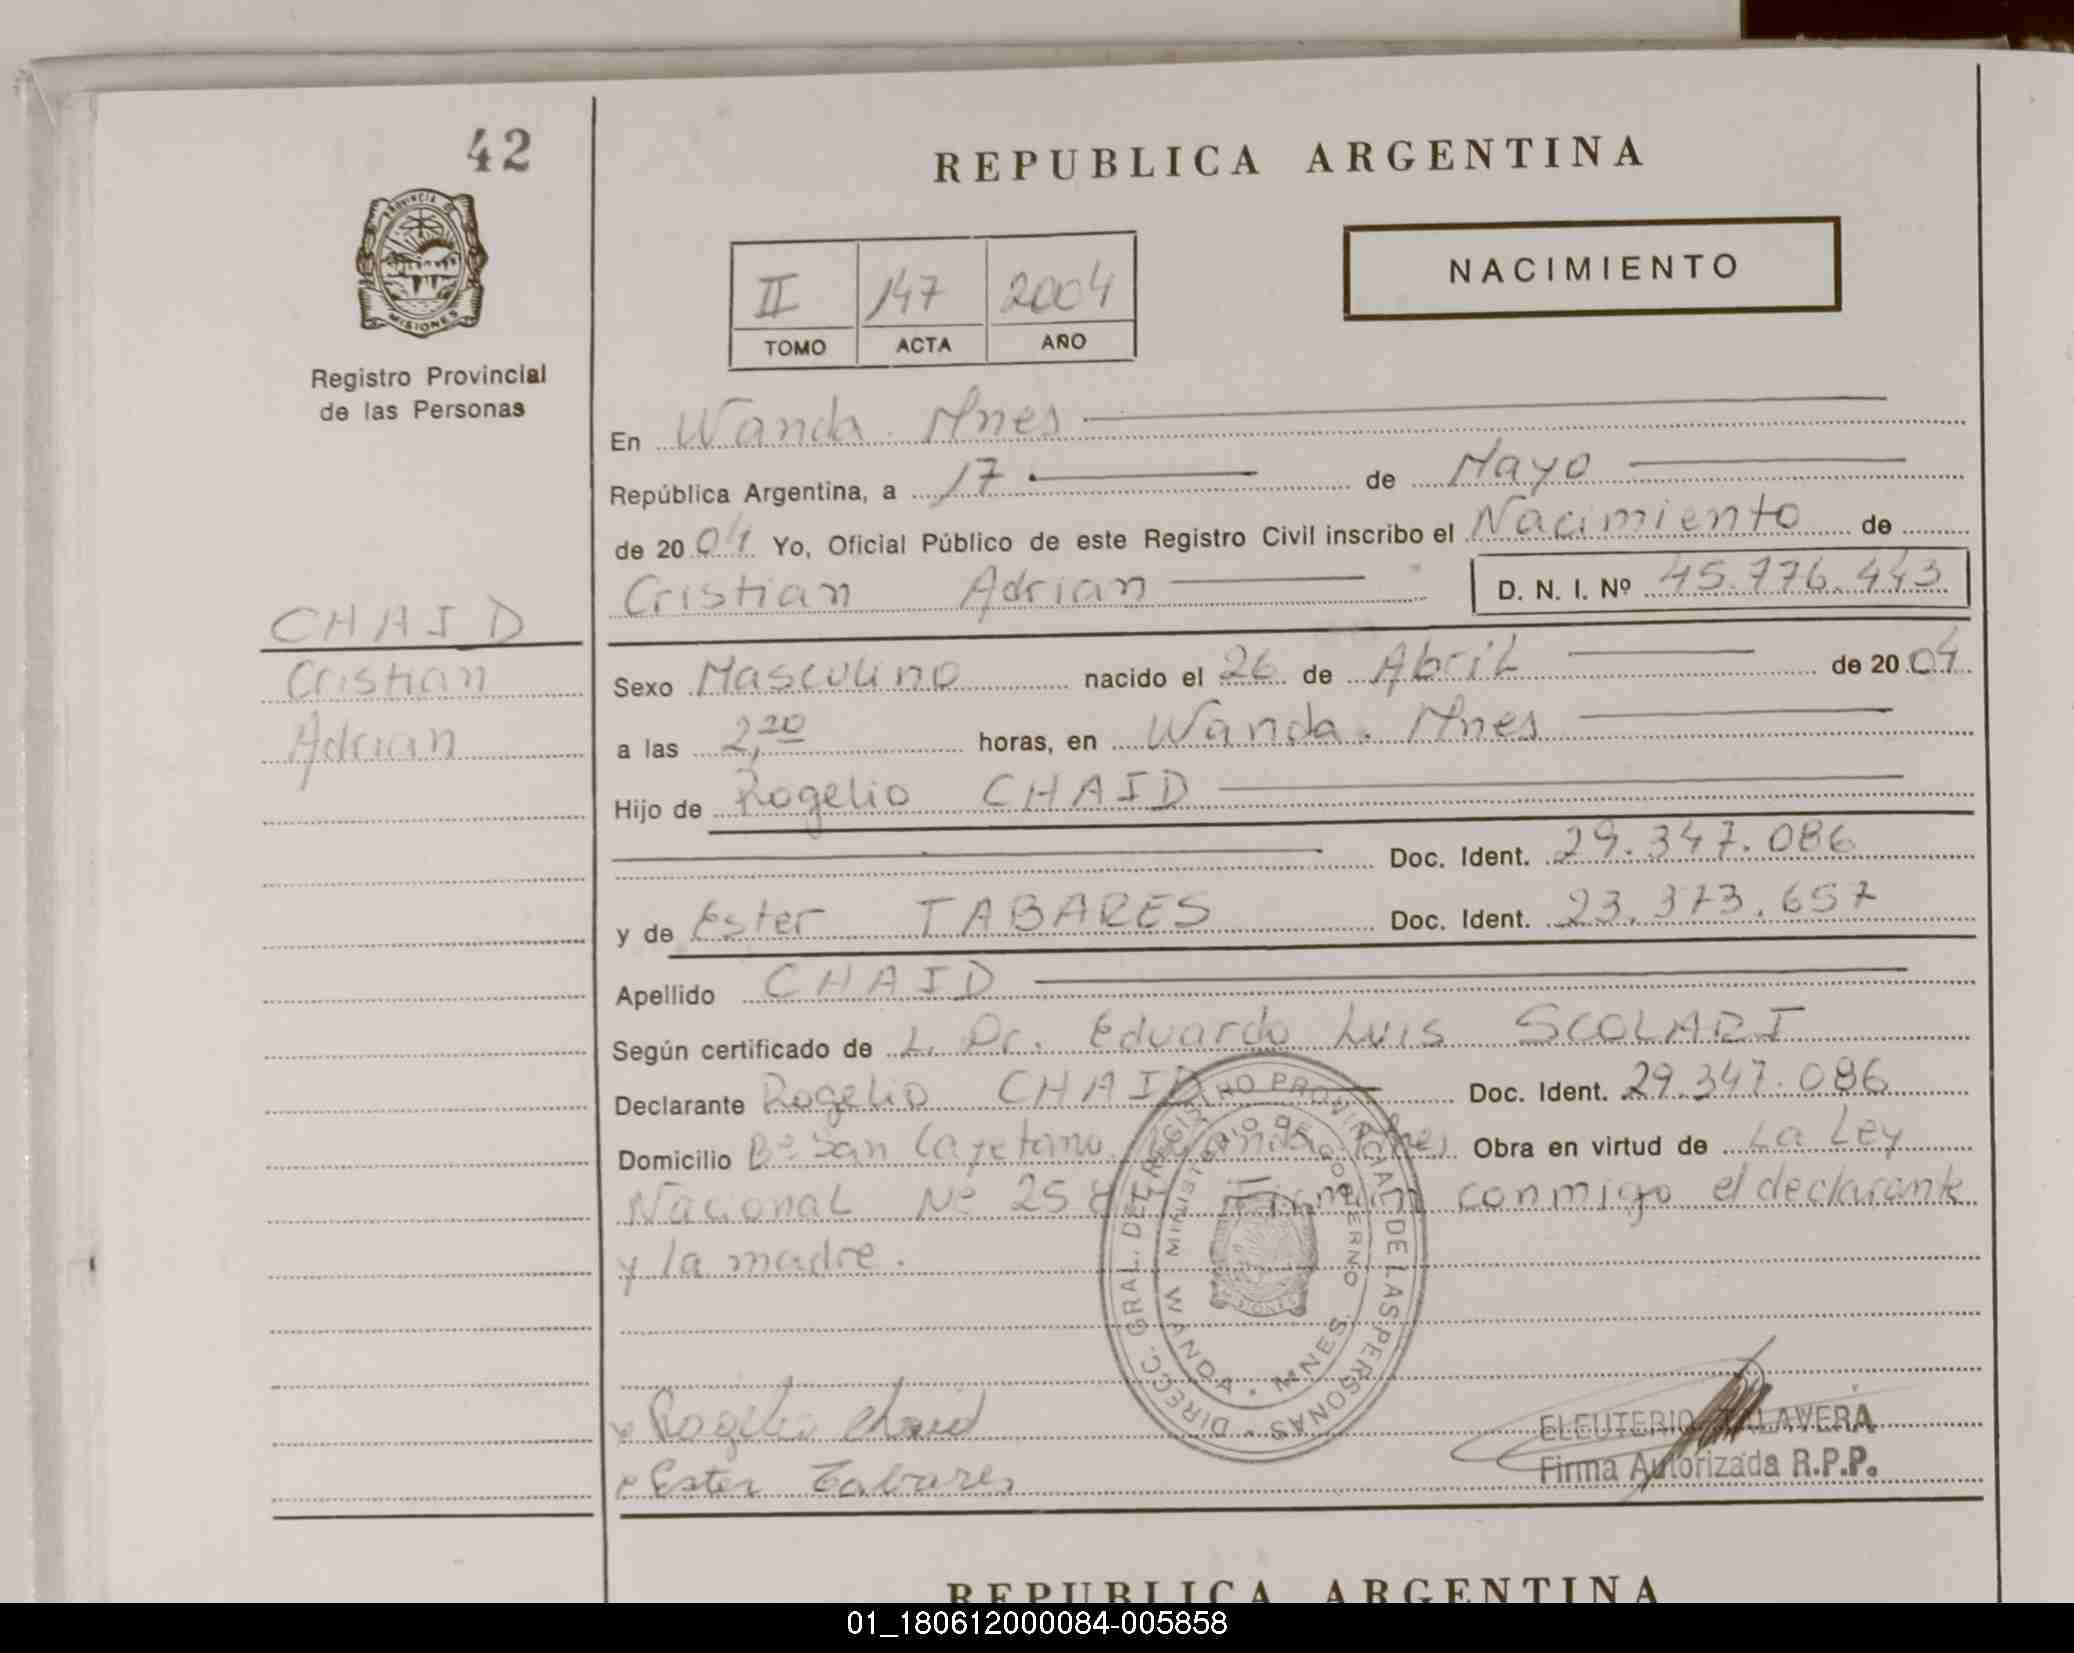 42
REPUBLICA ARGENTINA
NACIMIENTO
II 147 2004
TOMO ACTA AÑO
PROVINCIA DE
MISIONES
Registro Provincial
de las Personas
En Wanda. Mnes
República Argentina, a 17 de Mayo
de 2004 Yo, Oficial Público de este Registro Civil inscribo el Nacimiento de
Cristian Adrian D. N. I. Nº 45.776.443
CHAID
Cristian
Adrian
Sexo Masculino nacido el 26 de Abril de 2004
a las 2,20 horas, en Wanda. Mnes
Hijo de Rogelio CHAID
Doc. Ident. 29.347.086
y de Ester TABARES Doc. Ident. 23.373.657
Apellido CHAID
Según certificado de L. Dr. Eduardo Luis SCOLARI
Declarante Rogelio CHAID Doc. Ident. 29.347.086
Domicilio Bº San Cayetano. Wanda. Mnes Obra en virtud de La Ley
Nacional Nº Firman conmigo el declarante
y la madre.
DIRECC. GRAL. DE REGISTRO PROVINCIAL DE LAS PERSONAS
MINISTERIO DE GOBIERNO
WANDA - MNES.
MISIONES
Rogelio Chaid
Ester Tabares
ELEUTERIO TALAVERA
Firma Autorizada R.P.P.
REPUBLICA ARGENTINA
01_180612000084-005858